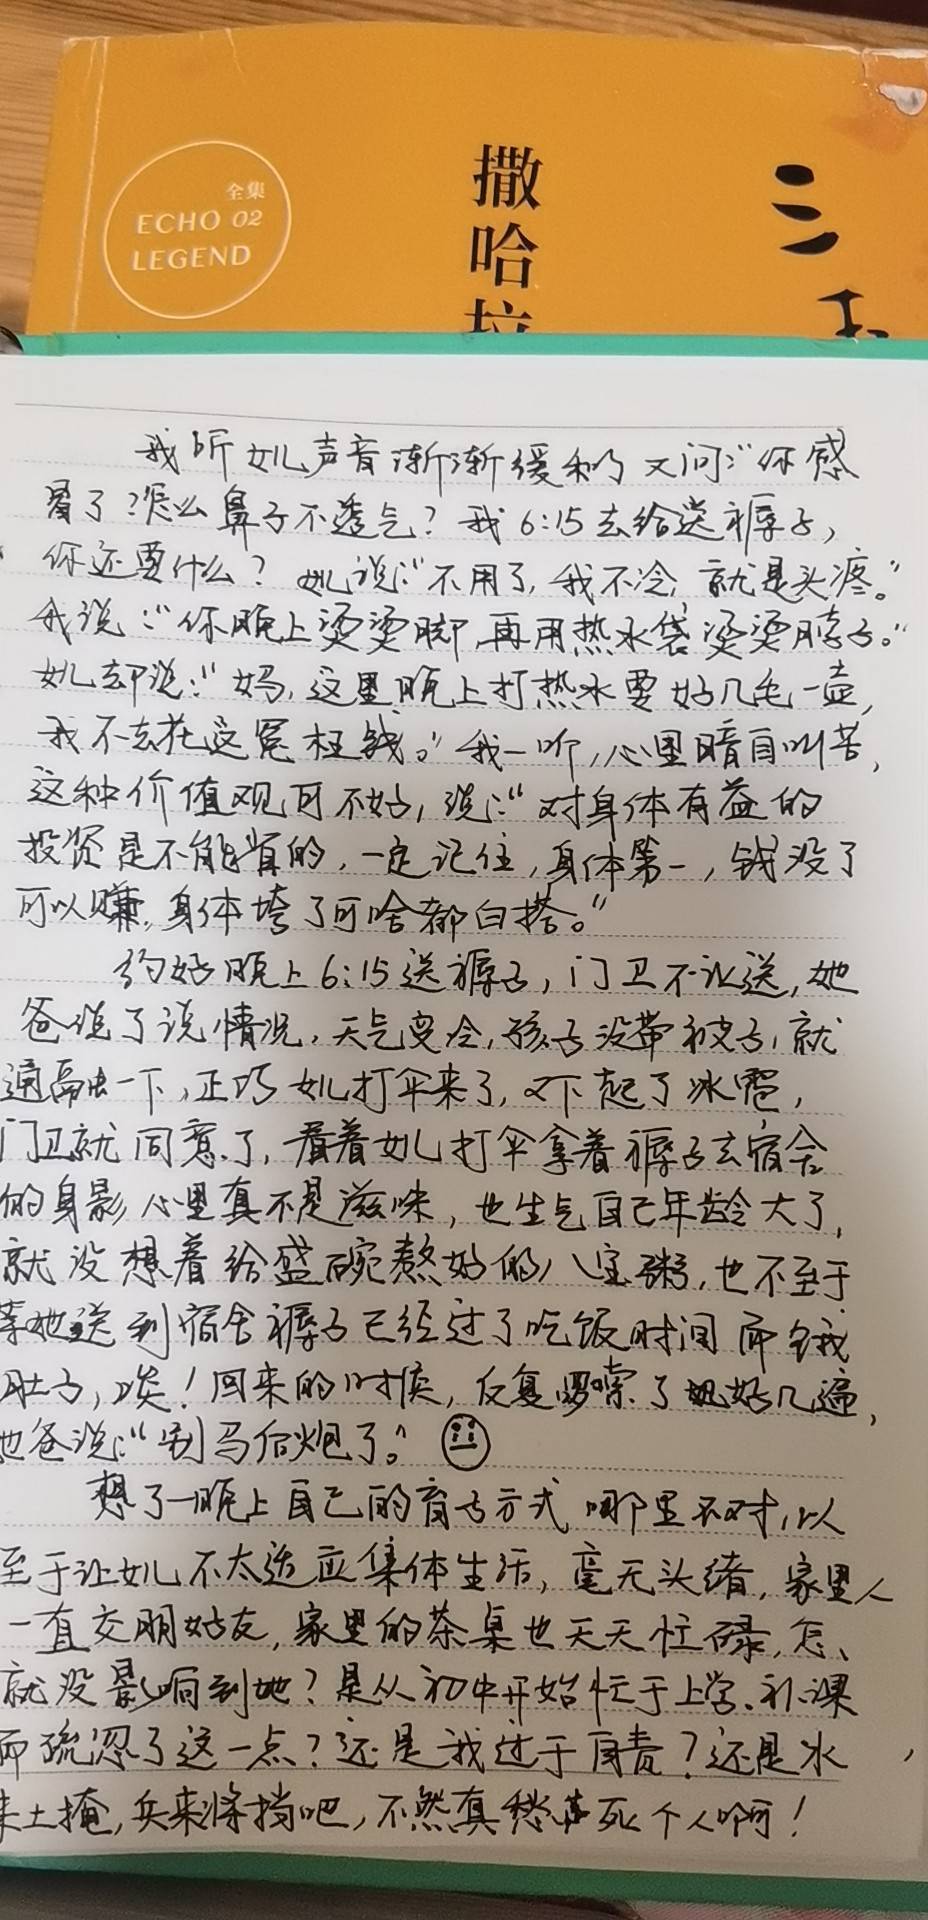 全集
ECHO 02
LEGEND
撒哈拉
三毛
我听她声音渐渐缓和了又问:"你感
冒了?怎么鼻子不透气?我6:15去给送褥子,
你还要什么?她说:"不用了,我不冷,就是头疼。"
我说:"你晚上烫烫脚,再用热水袋烫烫脖子。"
她却说:"妈,这里晚上打热水要好几毛一壶,
我不去花这冤枉钱。"我一听,心里暗自叫苦,
这种价值观可不好,说:"对身体有益的
投资是不能省的,一定记住,身体第一,钱没了
可以赚,身体垮了可啥都白搭。"
约好晚上6:15送褥子,门卫不让送,她
爸说了说情况,天气变冷,孩子没带被子,就
通融一下,正巧她打伞来了,又下起了冰雹,
门卫就同意了,看着她打伞拿着褥子去宿舍
的身影心里真不是滋味,也生气自己年龄大了,
就没想着给盛碗熬好的八宝粥,也不至于
等她送到宿舍褥子已经过了吃饭时间而饿
肚子,唉!回来的时候,反复啰嗦了好几遍,
她爸说:"别马后炮了。"
想了一晚上自己的育子方式哪里不对,以
至于让她不太适应集体生活,毫无头绪,家里人
一直交朋好友,家里的茶桌也天天忙碌,怎、
就没影响到她?是从初中开始忙于上学、补课
而疏忽了这一点?还是我过于自责?还是水
来土掩,兵来将挡吧,不然真愁死个人啊!